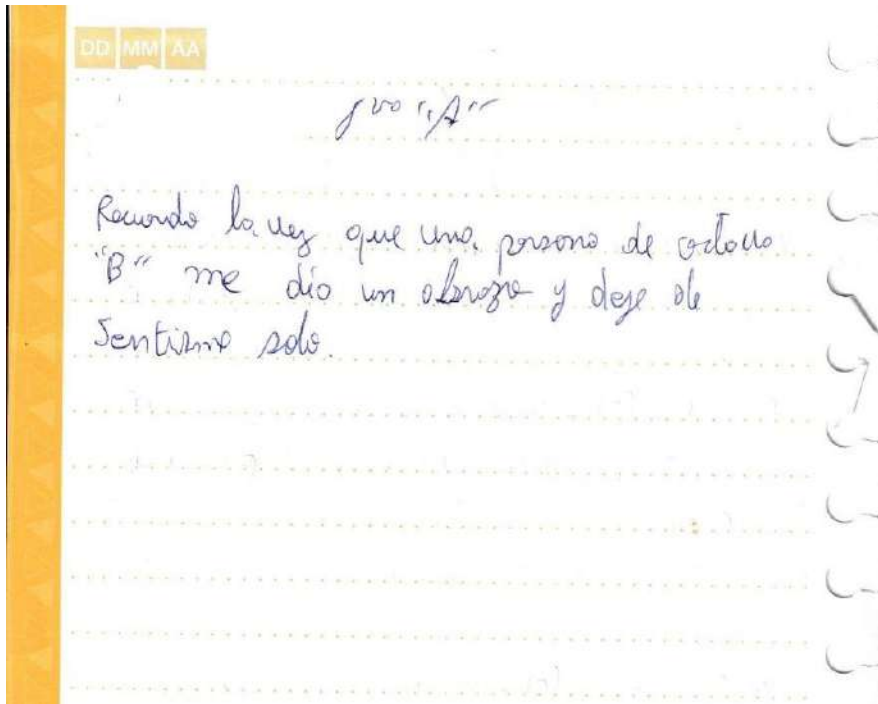 DD MM AA
8vo "A"
Recuerdo la vez que una persona de octavo
"B" me dio un abrazo y deje de
Sentirme solo.